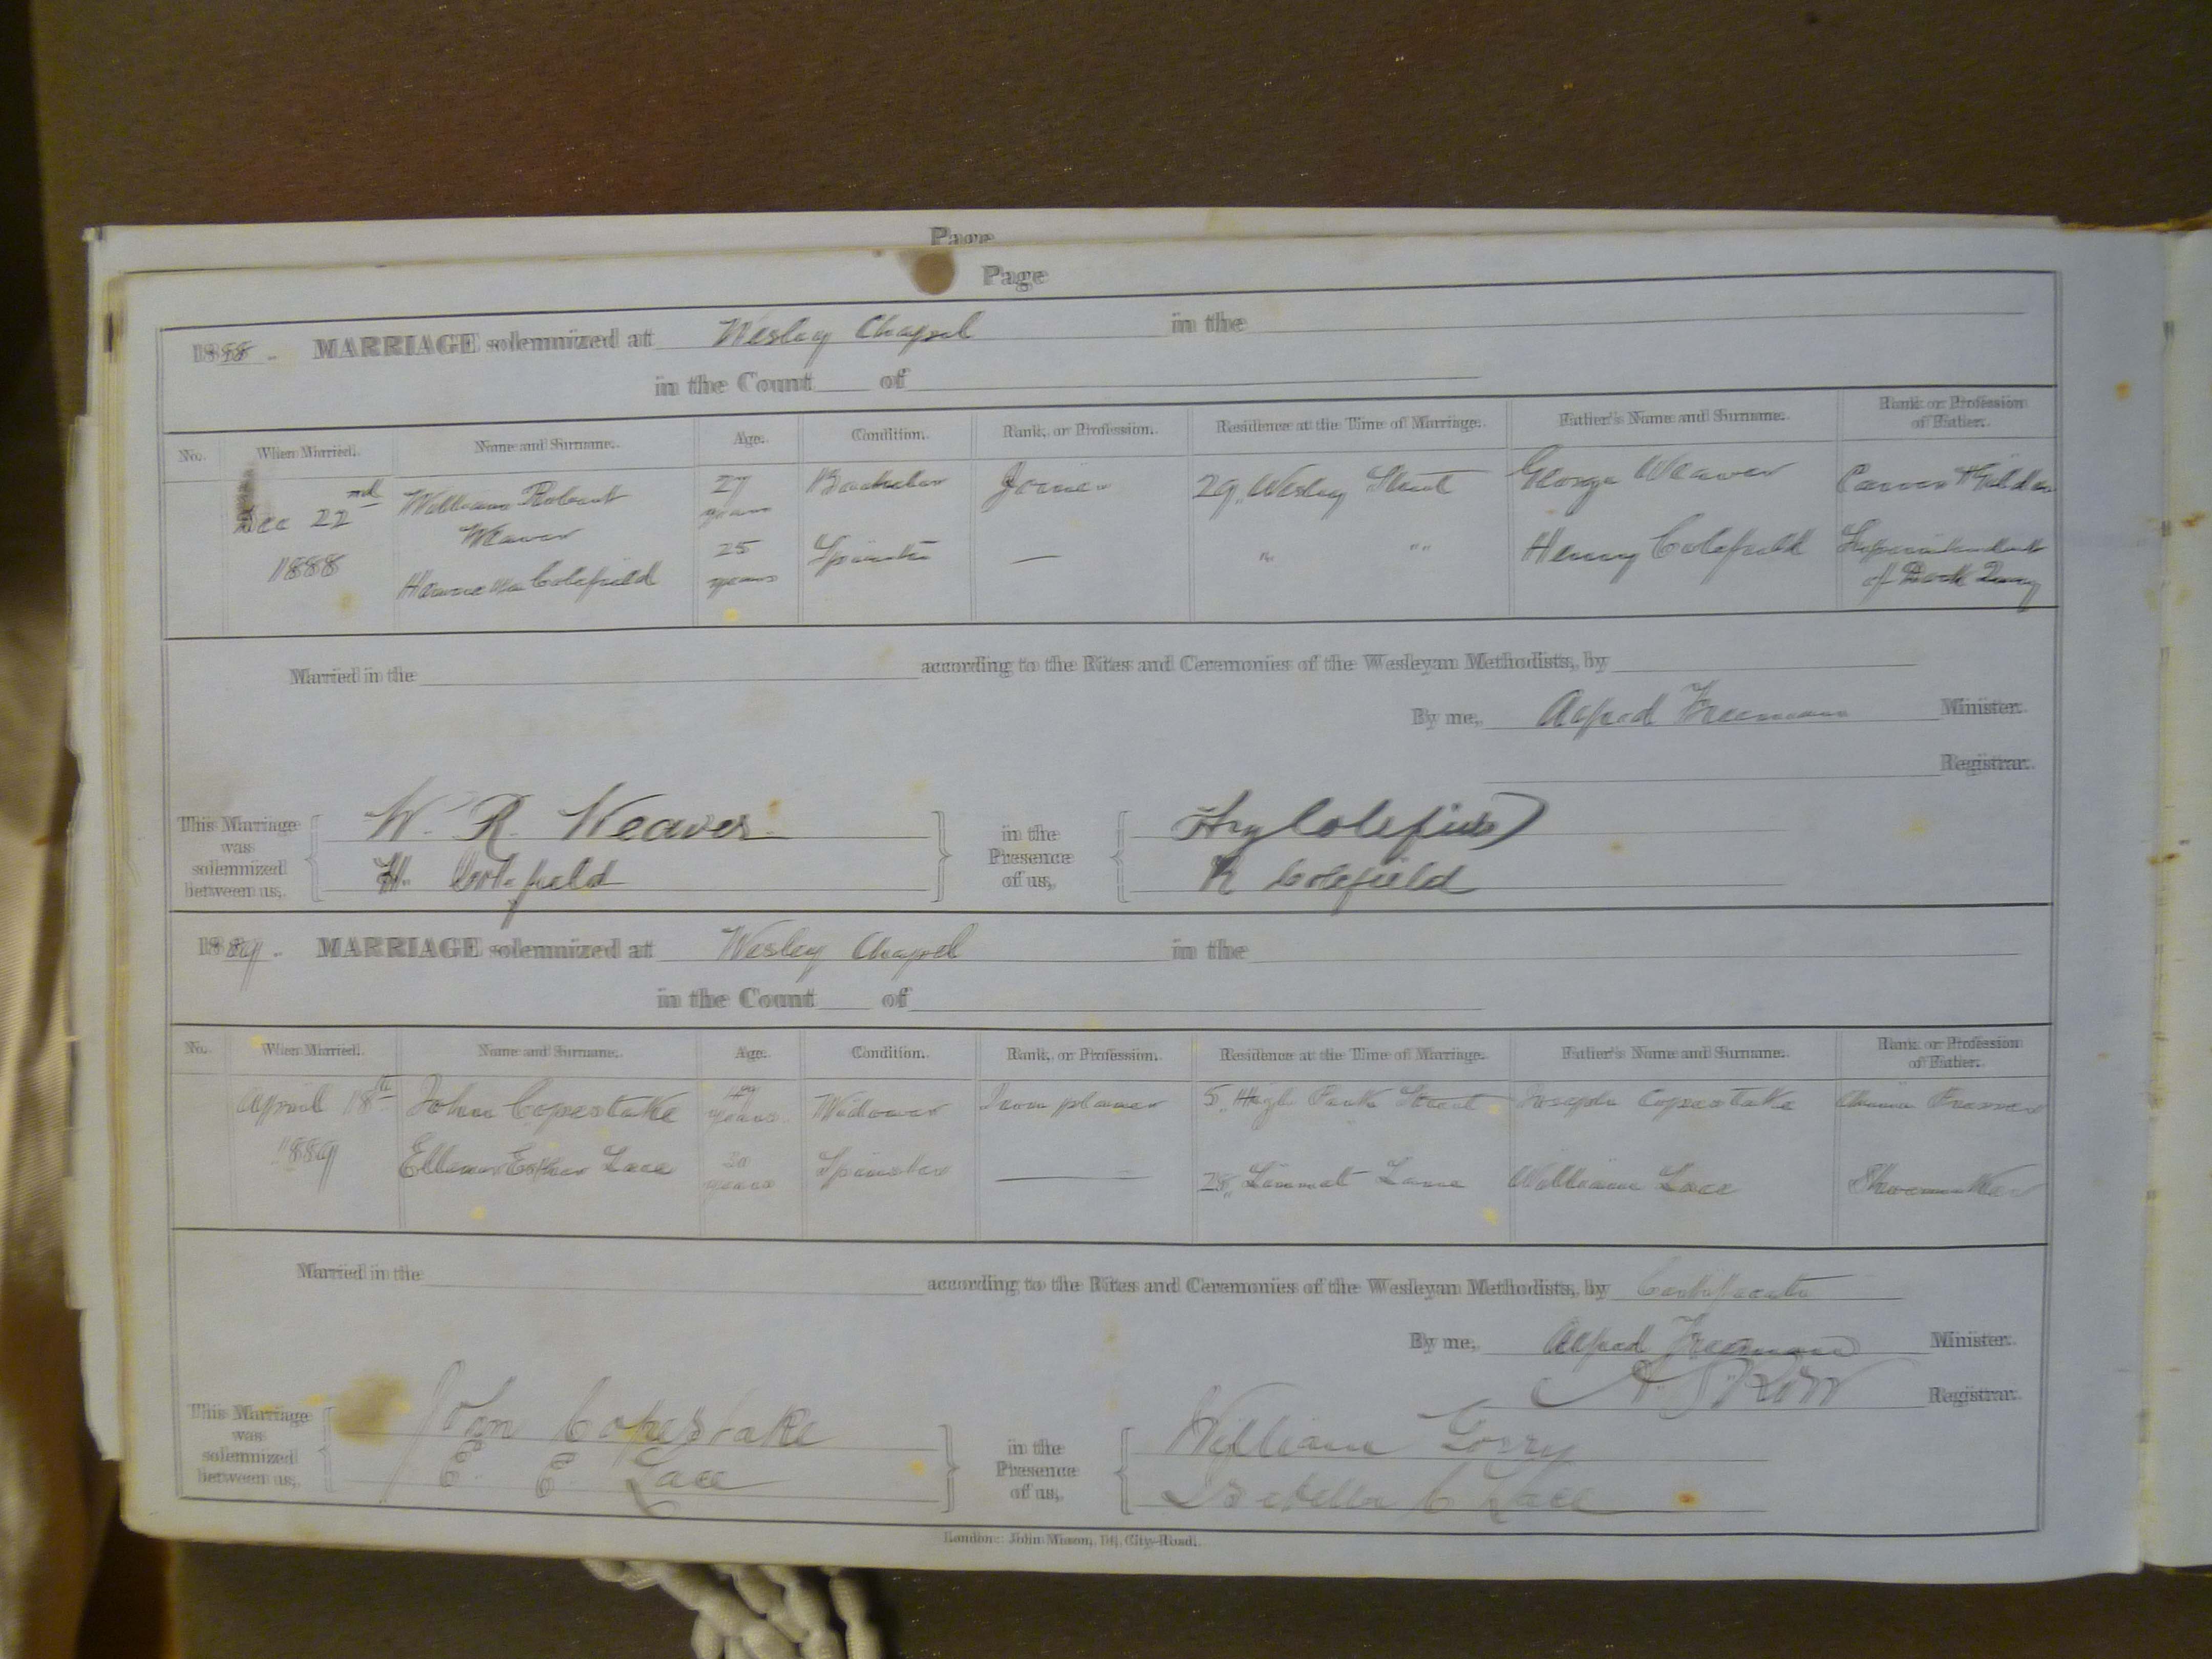 Page
Page
1888. MARRIAGE solemnized at Wesley Chapel in the
in the Count of
No. When Married. Name and Surname. Age. Condition. Rank, or Profession. Residence at the Time of Marriage. Father's Name and Surname. Rank or Profession of Father.
Dec 22nd William Robert 27 years Bachelor Joiner 29, Wesley Street George Weaver Carver & Gilder
Weaver
1888 Colefield 25 years Spinster — " " Henry Colefield Superintendent
of Dock
Married in the according to the Rites and Ceremonies of the Wesleyan Methodists, by
By me, Alfred Freeman Minister.
Registrar.
This Marriage was solemnized between us, W. R. Weaver in the Presence of us, Hy Colefield
H. Colefield R Colefield
1889. MARRIAGE solemnized at Wesley Chapel in the
in the Count of
No. When Married. Name and Surname. Age. Condition. Rank, or Profession. Residence at the Time of Marriage. Father's Name and Surname. Rank or Profession of Father.
April 18th John Copestake years Widower Iron planer 5, High Park Street Joseph Copestake China
1889 Esther Lace years Spinster — 28, Lane William Lace Shoemaker
Married in the according to the Rites and Ceremonies of the Wesleyan Methodists, by Certificate
By me, Alfred Freeman Minister.
Registrar.
This Marriage was solemnized between us, John Copestake in the Presence of us, William
E. E. Lace Isabella C Lace
London: John Mason, 14, City-Road.